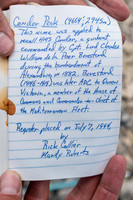 Condor Peak (9664', 2945m)
This name was applied to
recall HMS Condor, a gunboat
commanded by Capt. Lord Charles
William de la Poer Beresford
during the bombardment of
Alexandria in 1882. Beresford
(1846-1919) was later ADC to Queen
Victoria, a member of the House of
Commons and Commander-in-Chief of
the Mediterranean Fleet.
Register placed on July 7, 1994,
by
Rick Collier
Mandy Roberts